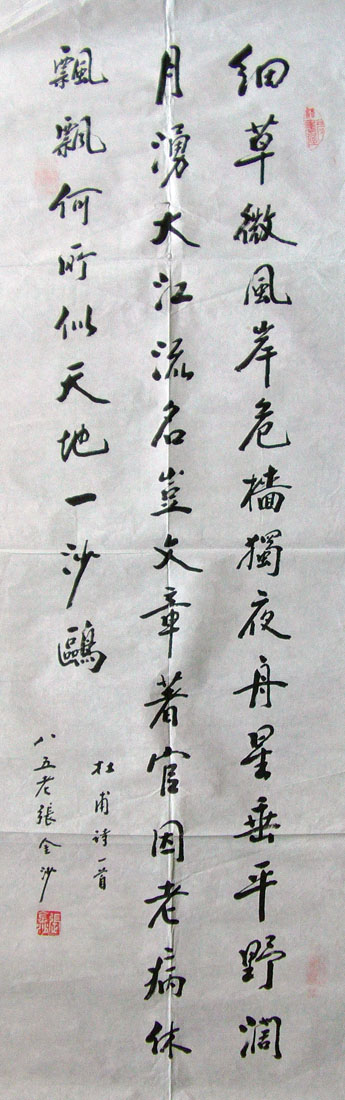 细草微风岸危樯獨夜舟星垂平野濶
月湧大江流名豈文章著官因老病休
飄飄何所似天地一沙鷗
杜甫诗一首
八五老張金沙